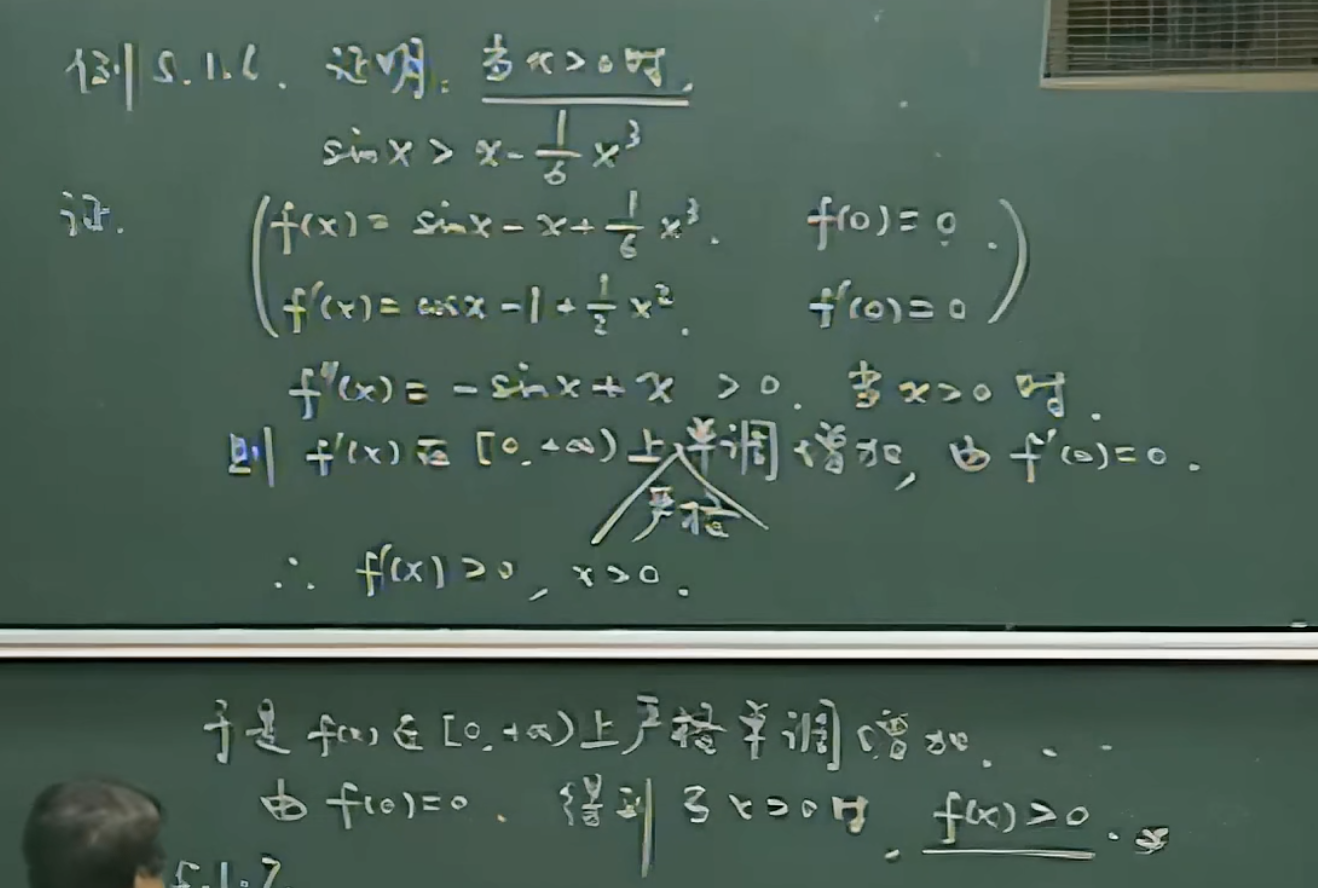 例 5.1.6. 证明. 当 x>0 时.
sin x > x - 1/6 x³
证. ( f(x) = sin x - x + 1/6 x³. f(0) = 0.
f'(x) = cos x - 1 + 1/2 x². f'(0) = 0 )
f''(x) = - sin x + x > 0. 当 x>0 时.
则 f'(x) 在 [0, +∞) 上 单调增加, 由 f'(0) = 0.
严格
∴ f'(x) > 0, x > 0.
于是 f(x) 在 [0, +∞) 上严格单调增加.
由 f(0) = 0. 得到 当 x>0 时. f(x) > 0.
5.1.7.